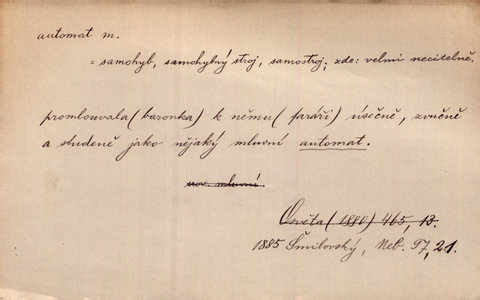 automat m.
= samohyb, samohybný stroj, samostroj; zde: velmi necitelně.
promlouvala (baronka) k němu (faráři) úsečně, zvučně
a studeně jako nějaký mluvní automat.
srov. mluvní.
Osvěta (1880) 465, 13.
1885 Šmilovský, Neb. 97, 21.